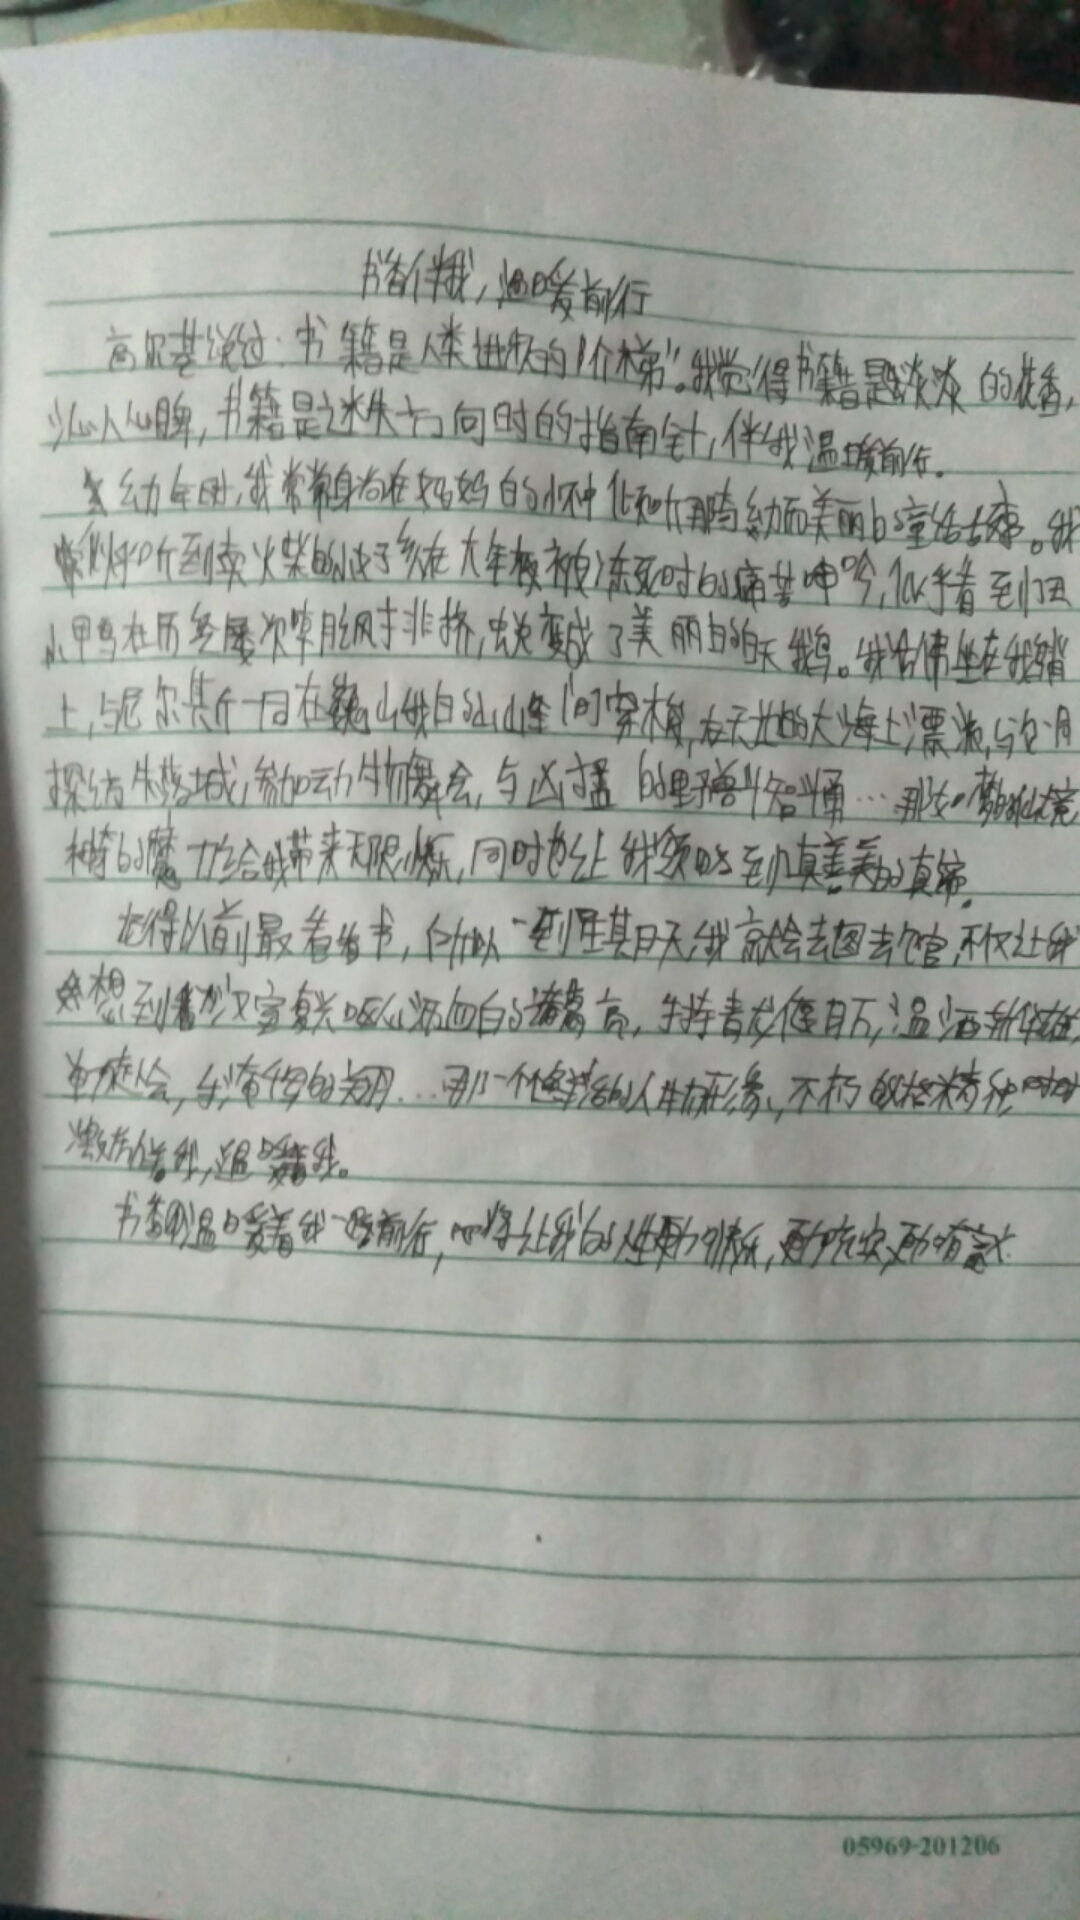 书香伴我，温暖前行
高尔基说过：书籍是人类进步的阶梯”。我觉得书籍是淡淡的花香，
沁人心脾，书籍是迷失方向时的指南针，伴我温暖前行。
幼年时，我常常身为在妈妈的怀中 美丽的童话故事。我
听到卖火柴的 在大年夜被冻死时的痛苦呻吟，似乎看到丑
小鸭在历经屡次 排挤，蜕变成了美丽的白天鹅。我仿佛坐在我鹅背
上，与尼尔斯一同在巍峨的山峰间穿梭，在无边的大海上漂流，与
探访 城，参加动物舞会，与凶猛的野兽斗智斗勇…那如梦的仙境
神奇的魔力给我带来无限快乐，同时也让我领略到真善美的真谛。
记得以前最 看书，所以一到星期天，我就会去图书馆，不仅让我
想到 汉室复兴呕心沥血的诸葛亮，手持青龙偃月刀，温酒斩华雄，
单刀赴会， … 那一个个 的人物形象，不朽的 精神时时
激励着我，温暖着我。
书香 温暖着我一路前行，必将让我的人生更加快乐，更加充实，更加有意义
05969-201206